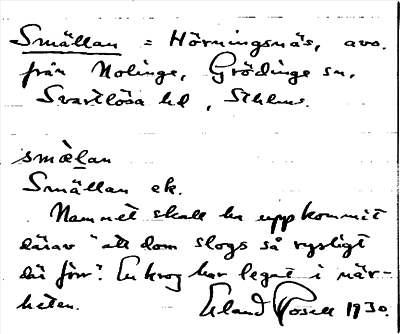 Smällan = Hörningsnäs, avs.
från Nolinge, Grödinge sn,
Svartlösa hd, Sthlms.
smæ̀lan
Smällan ek.
Namnet skall ha uppkommit
därav "att dom slogs så rysligt
där förr". En krog har legat i när-
heten. Erland Rosell 1930.